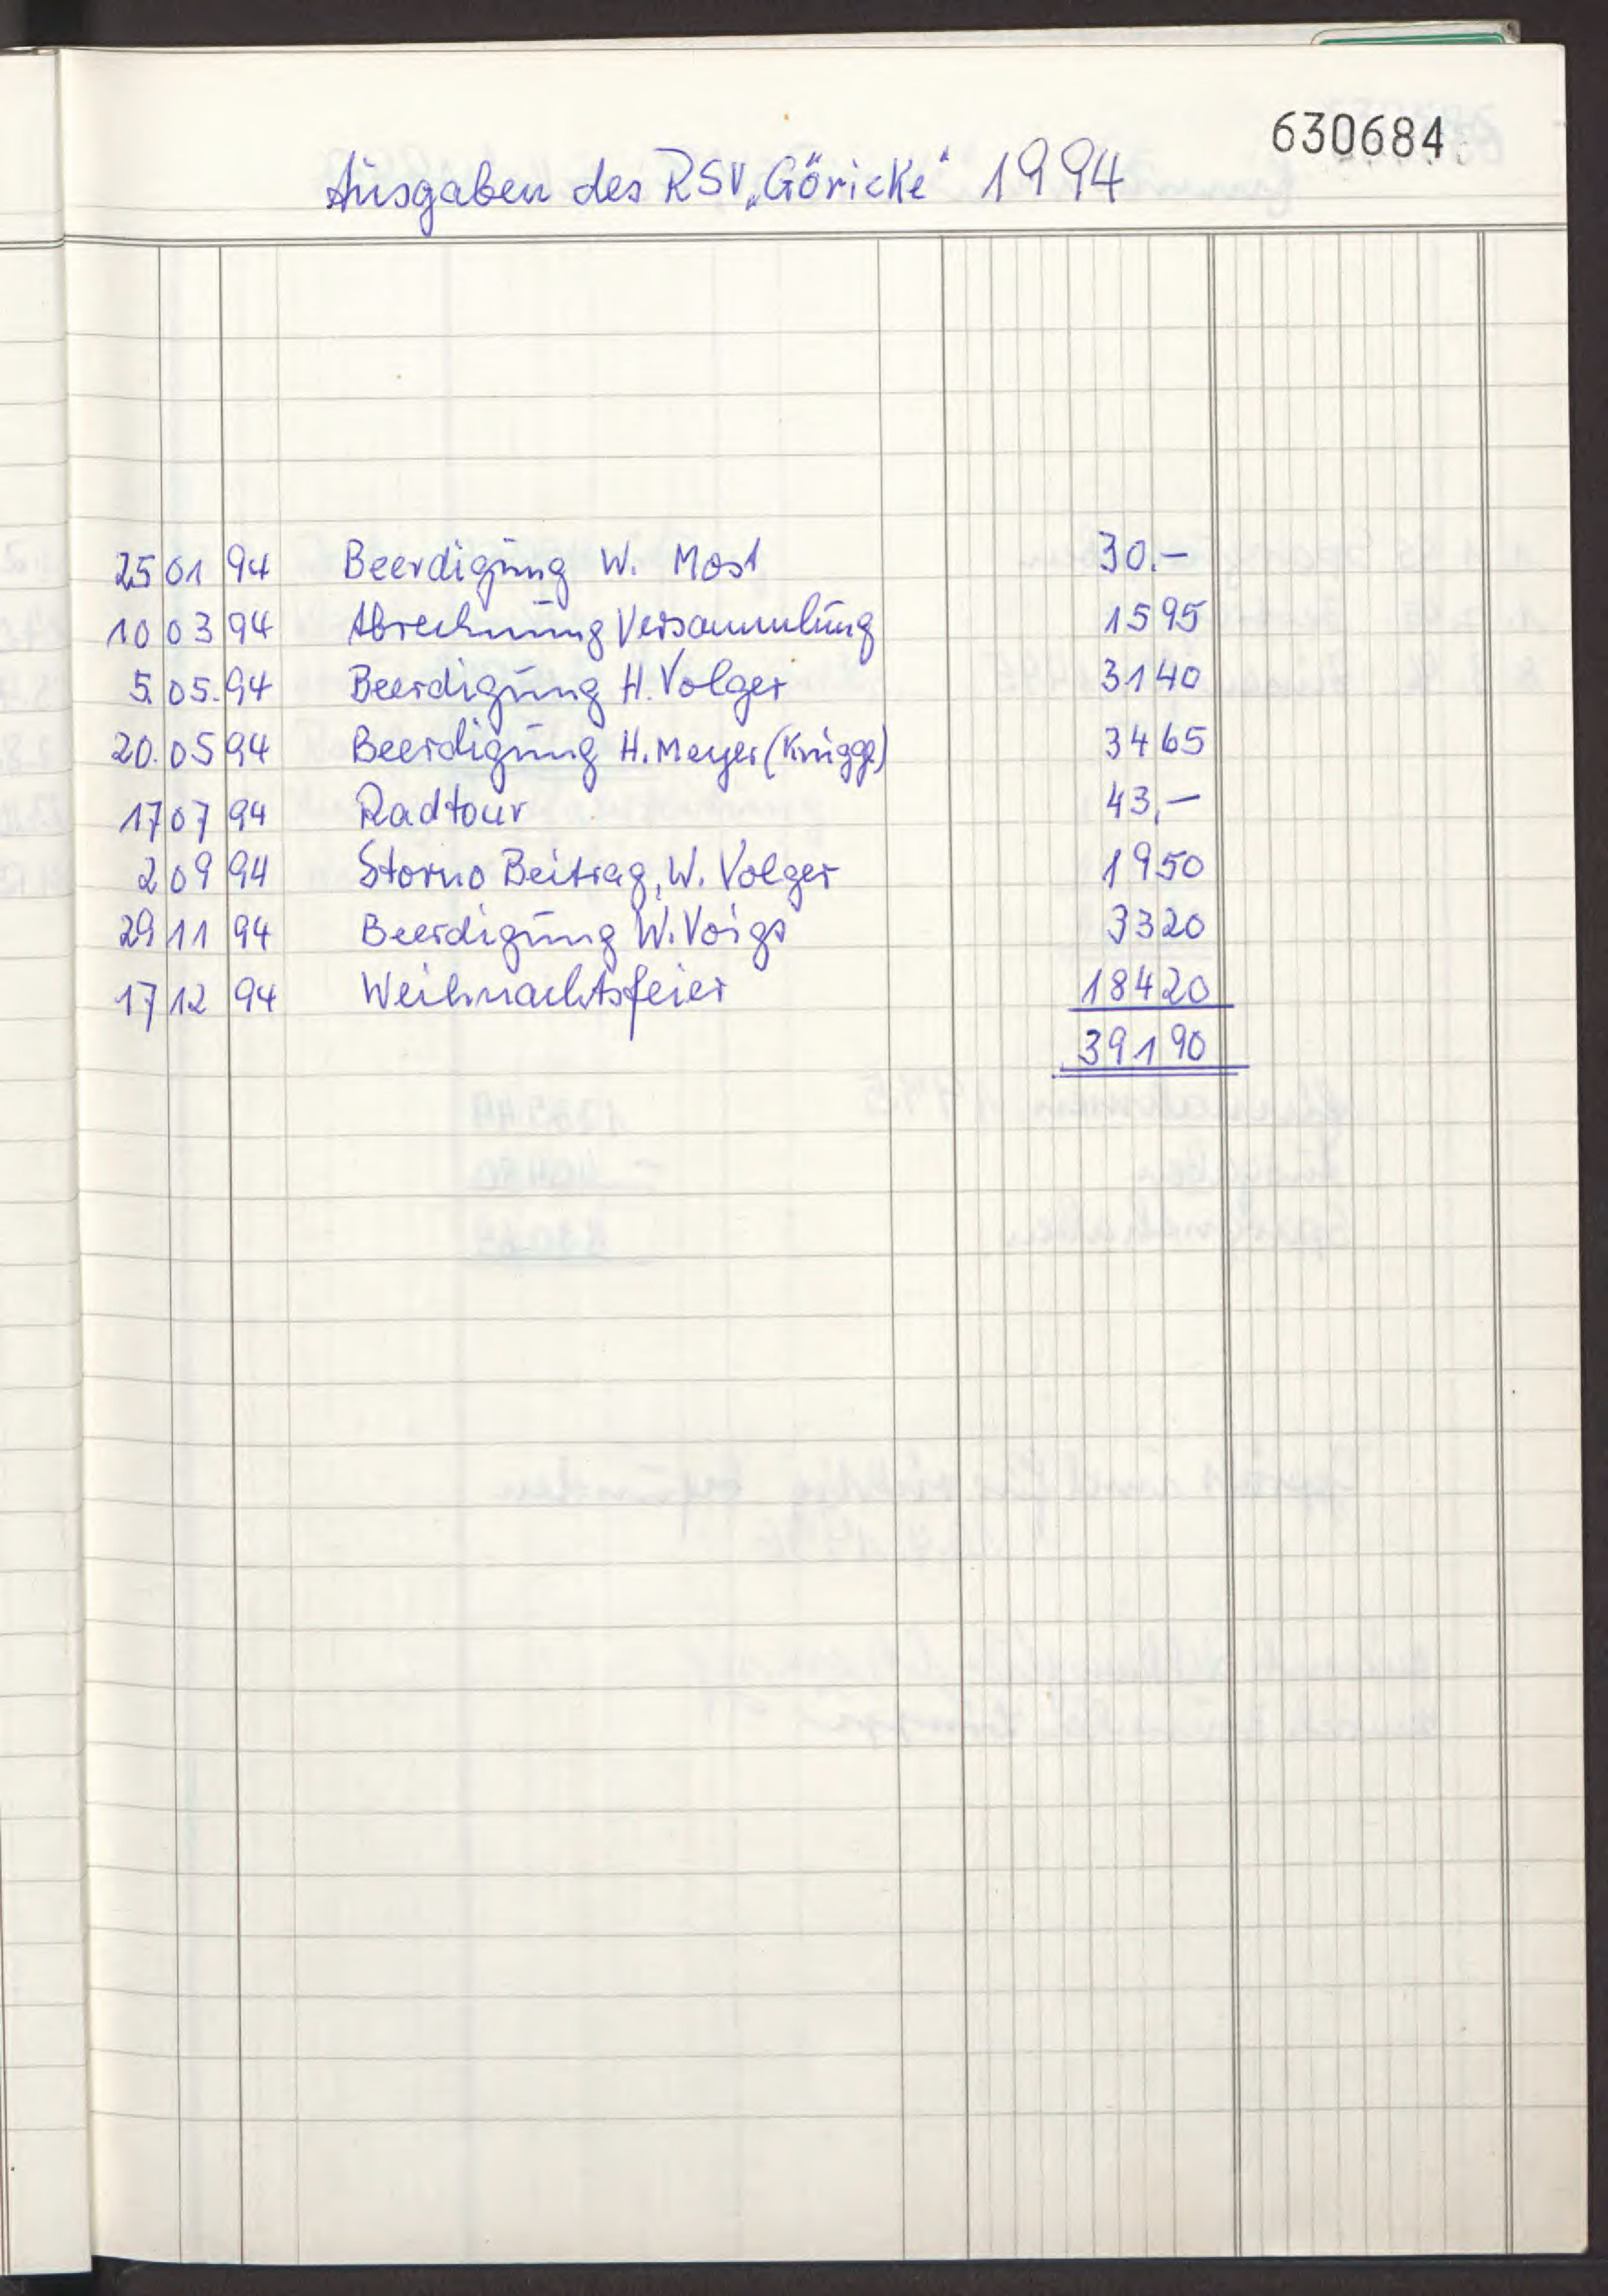 630684
Ausgaben des RSV „Göricke“ 1994
25 01 94 Beerdigung W. Most 30.–
10 03 94 Abrechnung Versammlung 1595
5. 05. 94 Beerdigung H. Volger 3140
20. 05 94 Beerdigung H. Meyer (Knigge) 3465
17 07 94 Radtour 43,–
2 09 94 Storno Beitrag, W. Volger 1950
29 11 94 Beerdigung W. Voigs 3320
17 12 94 Weihnachtsfeier 18420
39190